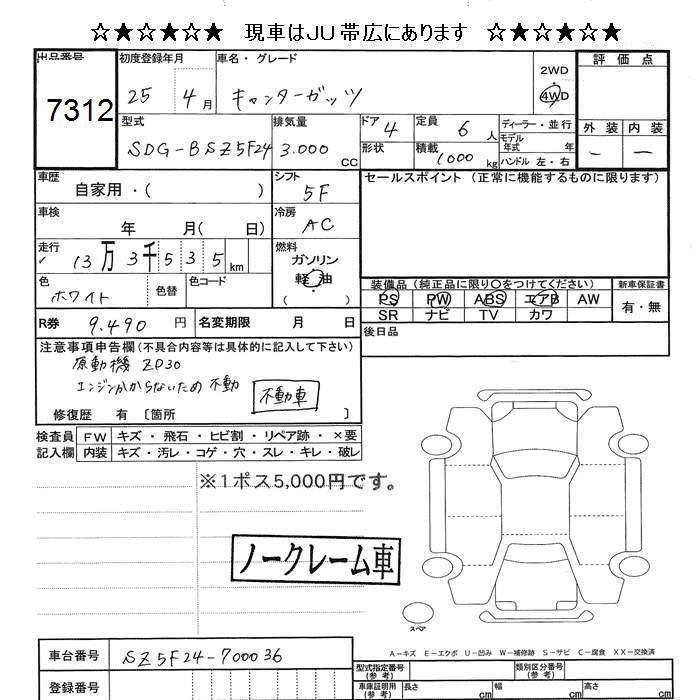 ☆★☆★☆★ 現車はJU帯広にあります ☆★☆★☆★
出品番号 7312
初度登録年月 25 4月
車名・グレード キャンターガッツ
2WD
4WD
評価点
外装 内装
－ －
型式 SDG-BSZ5F24
排気量 3.000 CC
ドア 4
形状
定員 6 人
積載 1000 kg
ディーラー・並行
モデル年式 年
ハンドル 左・右
車歴 自家用・( )
シフト 5F
セールスポイント (正常に機能するものに限ります)
車検 年 月( 日)
冷房 AC
走行 13万3千535km
燃料 ガソリン
(軽油)
色 ホワイト
色替
色コード
装備品 (純正品に限り○をつけてください)
PS PW ABS エアB AW
SR ナビ TV カワ
新車保証書
有・無
R券 9.490 円
名変期限 月 日
後日品
注意事項申告欄 (不具合内容等は具体的に記入して下さい)
原動機 ZD30
エンジンかからないため 不動
不動車
修復歴 有 〔箇所 〕
検査員記入欄
FW キズ・飛石・ヒビ割・リペア跡・×要
内装 キズ・汚レ・コゲ・穴・スレ・キレ・破レ
※1ポス5,000円です。
ノークレーム車
スペア
A－キズ E－エクボ U－凹み W－補修跡 S－サビ C－腐食 XX－交換済
車台番号 SZ5F24-700036
登録番号
型式指定番号 (参考)
類別区分番号 (参考)
車庫証明用 (参考) 長さ cm 幅 cm 高さ cm